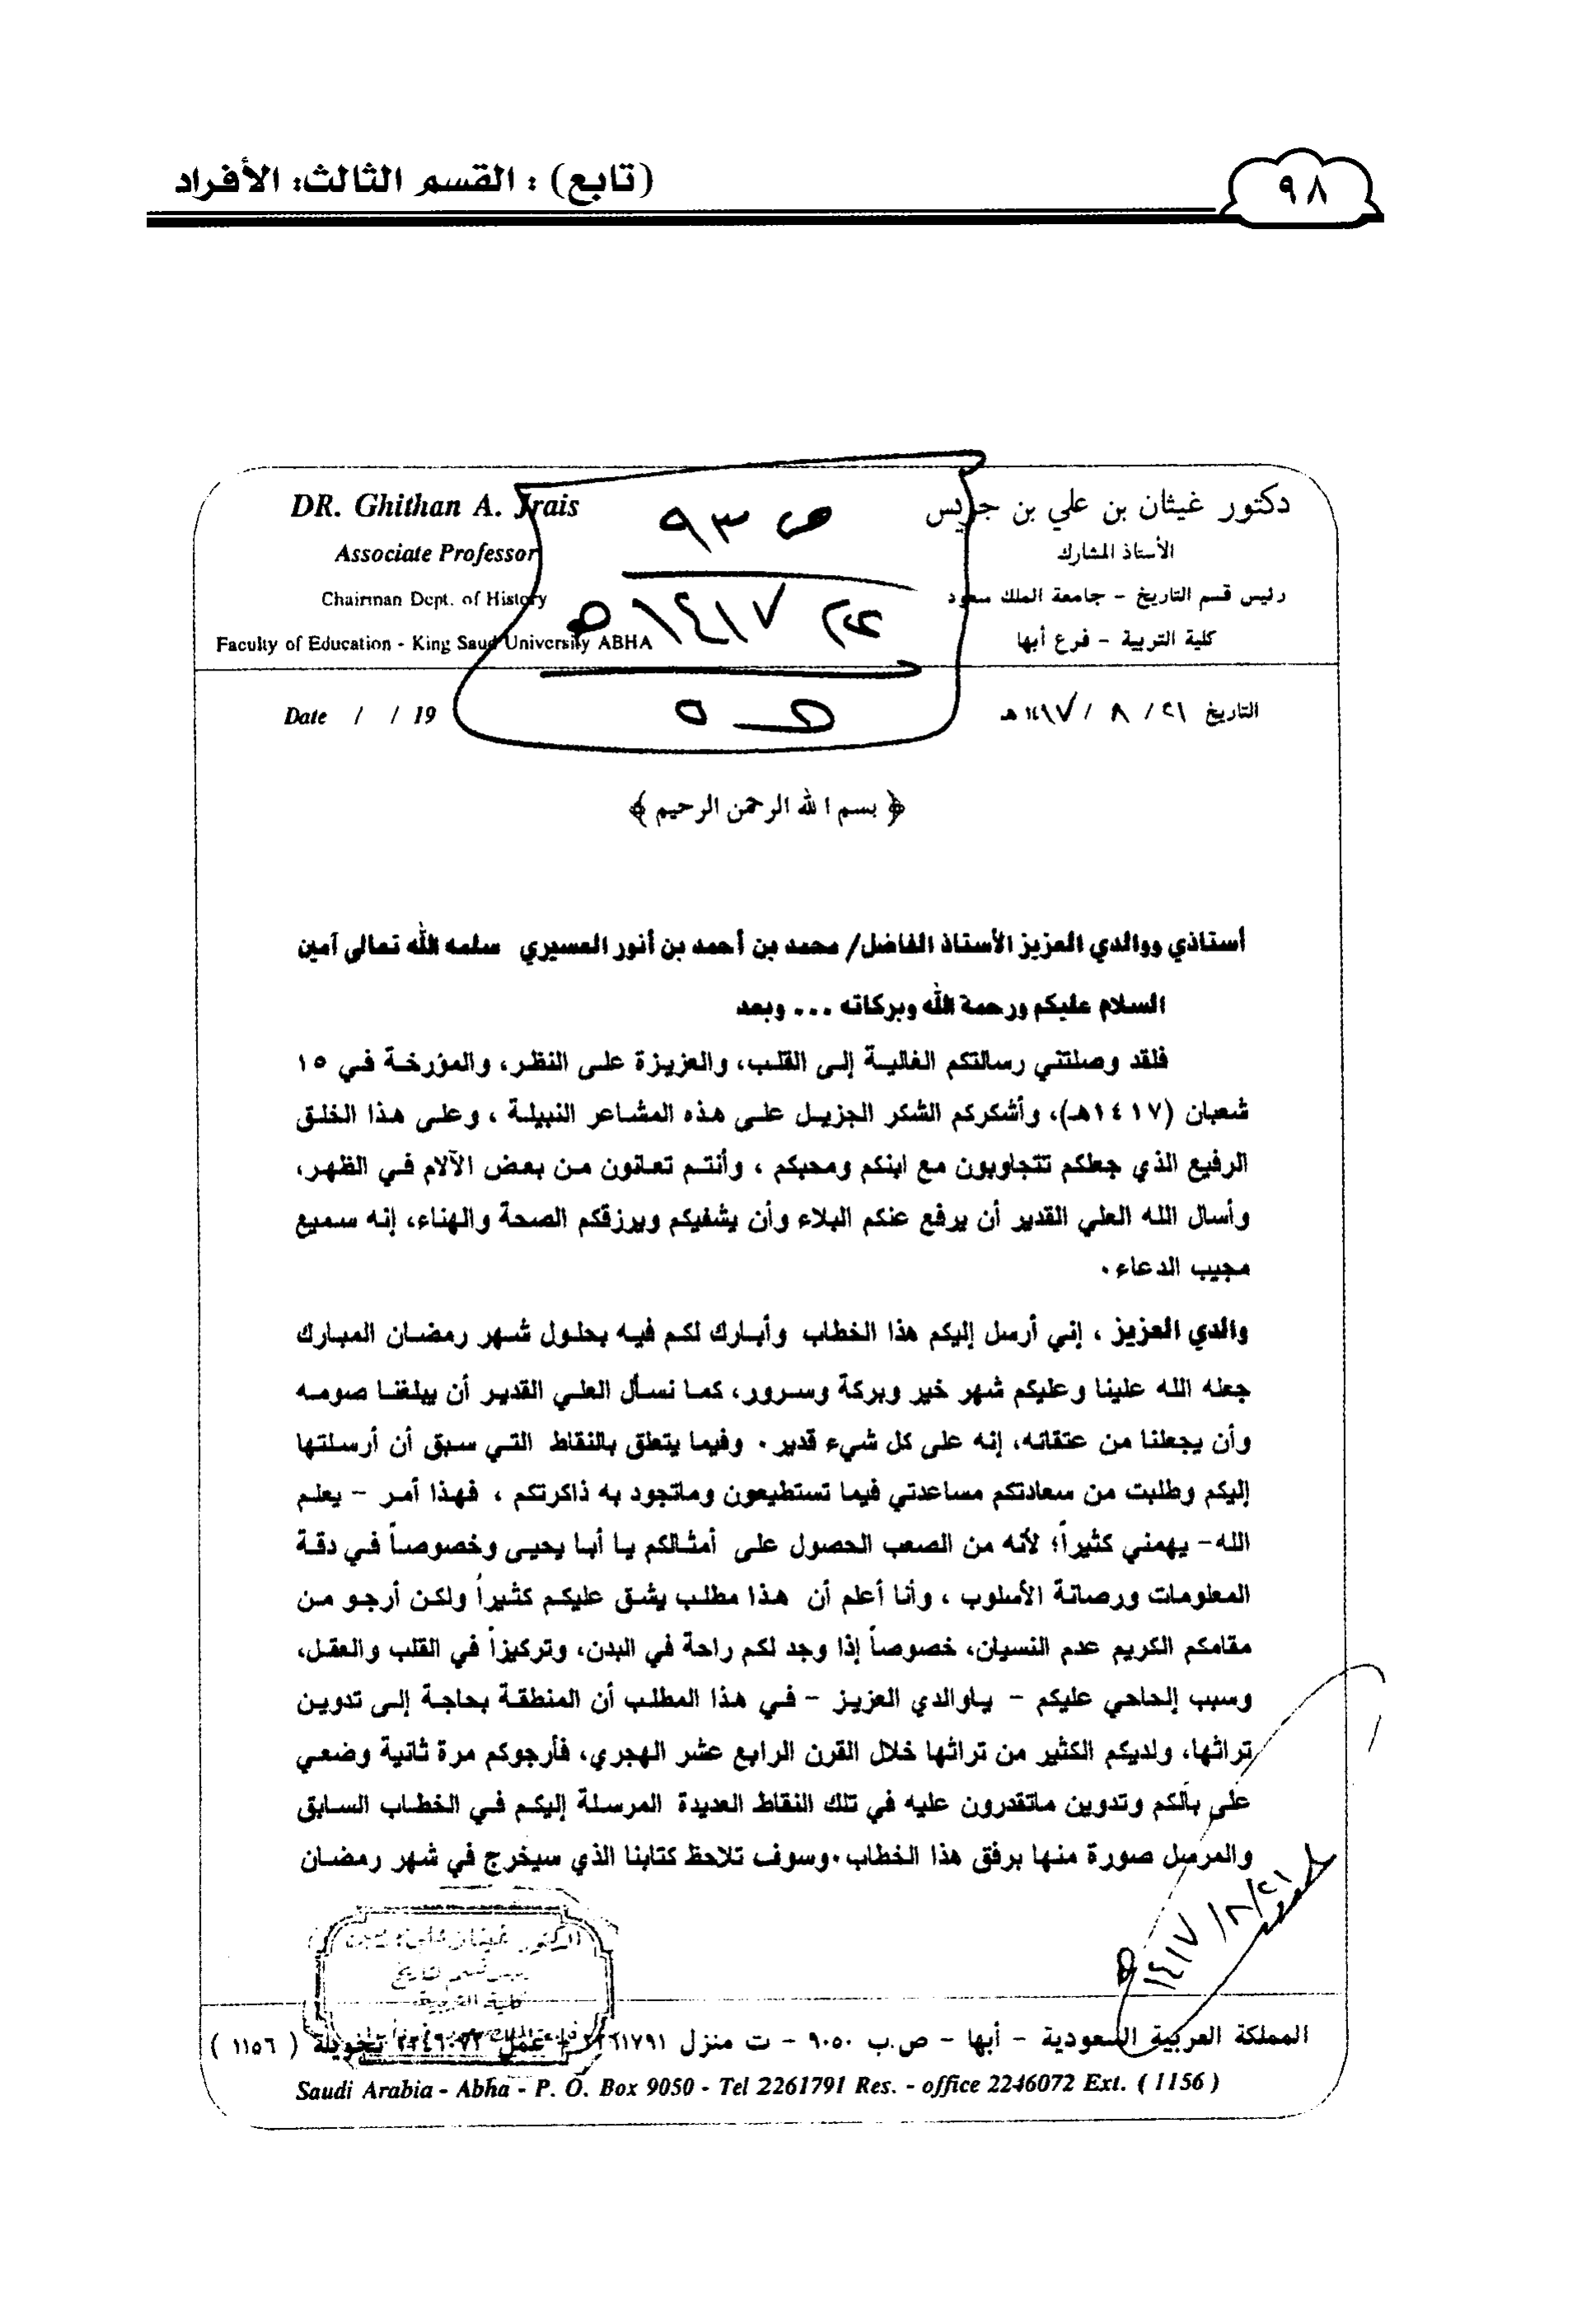 ٩٨
(تابع) : القسم الثالث: الأفراد
دكتور غيثان بن علي بن جريس
الأستاذ المشارك
رئيس قسم التاريخ - جامعة الملك سعود
كلية التربية - فرع أبها
DR. Ghithan A. Jrais
Associate Professor
Chairman Dept. of History
Faculty of Education - King Saud University ABHA
ص ٩٣
١٤١٧هـ
التاريخ ٢١ / ٨ / ١٤١٧هـ
Date / / 19
﴿ بسم الله الرحمن الرحيم ﴾
أستاذي ووالدي العزيز الأستاذ الفاضل/ محمد بن أحمد بن أنور العسيري سلمه الله تعالى آمين
السلام عليكم ورحمة الله وبركاته ... وبعد
فلقد وصلتني رسالتكم الغالية إلى القلب، والعزيزة على النظر، والمؤرخة في ١٥
شعبان (١٤١٧هـ)، وأشكركم الشكر الجزيل على هذه المشاعر النبيلة ، وعلى هذا الخلق
الرفيع الذي جعلكم تتجاوبون مع ابنكم ومحبكم ، وأنتم تعانون من بعض الآلام في الظهر،
وأسال الله العلي القدير أن يرفع عنكم البلاء وأن يشفيكم ويرزقكم الصحة والهناء، إنه سميع
مجيب الدعاء .
والدي العزيز ، إني أرسل إليكم هذا الخطاب وأبارك لكم فيه بحلول شهر رمضان المبارك
جعله الله علينا وعليكم شهر خير وبركة وسرور، كما نسأل العلي القدير أن يبلغنا صومه
وأن يجعلنا من عتقائه، إنه على كل شيء قدير . وفيما يتعلق بالنقاط التي سبق أن أرسلتها
إليكم وطلبت من سعادتكم مساعدتي فيما تستطيعون وماتجود به ذاكرتكم ، فهذا أمر - يعلم
الله - يهمني كثيراً؛ لأنه من الصعب الحصول على أمثالكم يا أبا يحيى وخصوصاً في دقة
المعلومات ورصانة الأسلوب ، وأنا أعلم أن هذا مطلب يشق عليكم كثيراً ولكن أرجو من
مقامكم الكريم عدم النسيان، خصوصاً إذا وجد لكم راحة في البدن، وتركيزاً في القلب والعقل،
وسبب إلحاحي عليكم - ياوالدي العزيز - في هذا المطلب أن المنطقة بحاجة إلى تدوين
تراثها، ولديكم الكثير من تراثها خلال القرن الرابع عشر الهجري، فأرجوكم مرة ثانية وضعي
على بالكم وتدوين ماتقدرون عليه في تلك النقاط العديدة المرسلة إليكم في الخطاب السابق
والمرسل صورة منها برفق هذا الخطاب .وسوف تلاحظ كتابنا الذي سيخرج في شهر رمضان
١٤١٧/٨/٢١هـ
كلية التربية
المملكة العربية السعودية - أبها - ص.ب ٩٠٥٠ - ت منزل ٢٢٦١٧٩١ عمل ٢٢٤٦٠٧٢ تحويلة ( ١١٥٦ )
Saudi Arabia - Abha - P. O. Box 9050 - Tel 2261791 Res. - office 2246072 Ext. ( 1156 )